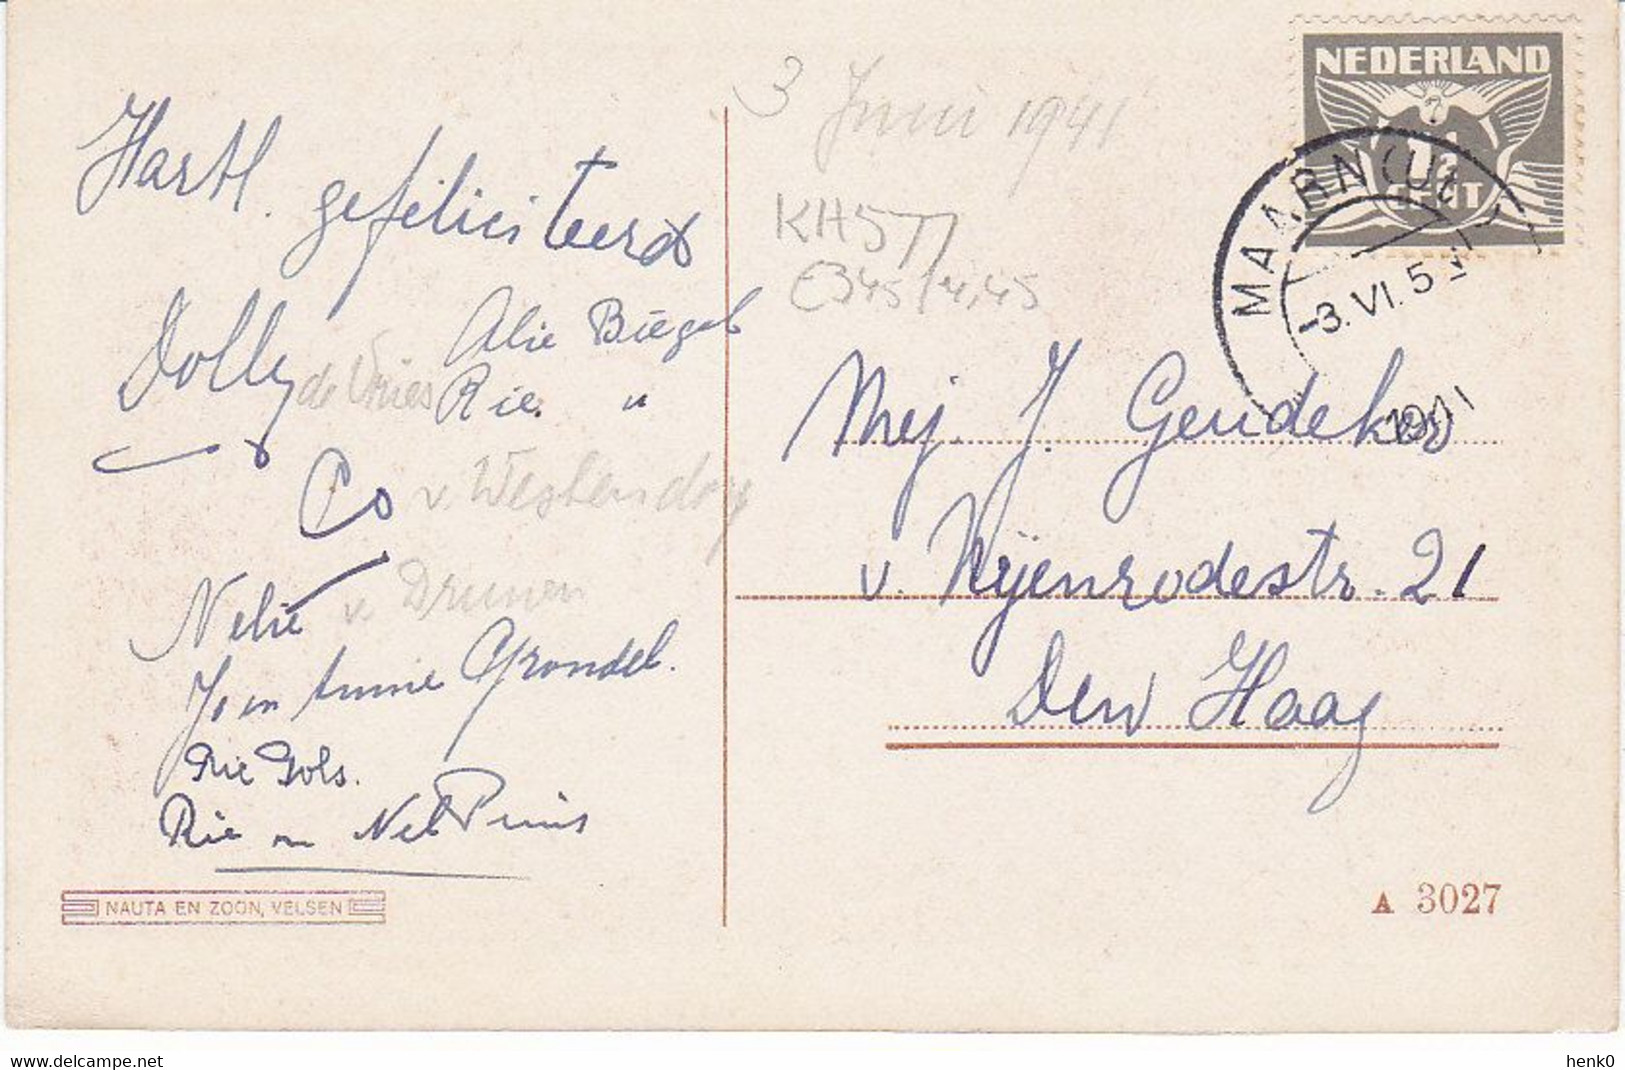 3 Juni 1941
NEDERLAND
1½
CENT
MAARN (Ut
-3.VI.5
1941
KH577
E345/4,45
Hartl. gefeliciteerd
Dolly de Vries
Alie Biegel
Rie. "
Co v Westendorp
Nelie v Drunen
Jo en Annie Grondel.
Rie Dols.
Rie en Nel Prins
Mej. J. Geudeker
v. Nijenrodestr. 21
Den Haag
NAUTA EN ZOON, VELSEN
A 3027
www.delcampe.net
henk0